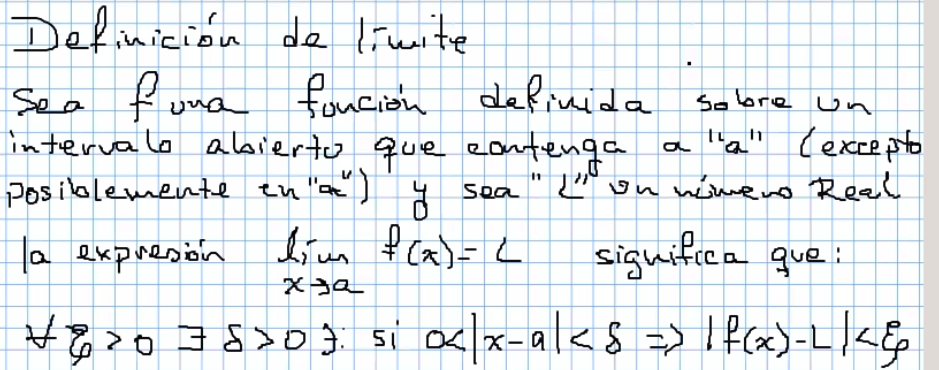 Definición de límite
Sea f una función definida sobre un
intervalo abierto que contenga a "a" (excepto
posiblemente en "a") y sea "L" un número Real
la expresión lím f(x)=L significa que:
x→a
∀ξ>0 ∃ δ>0 ∋: si 0<|x-a|<δ => |f(x)-L|<ξ